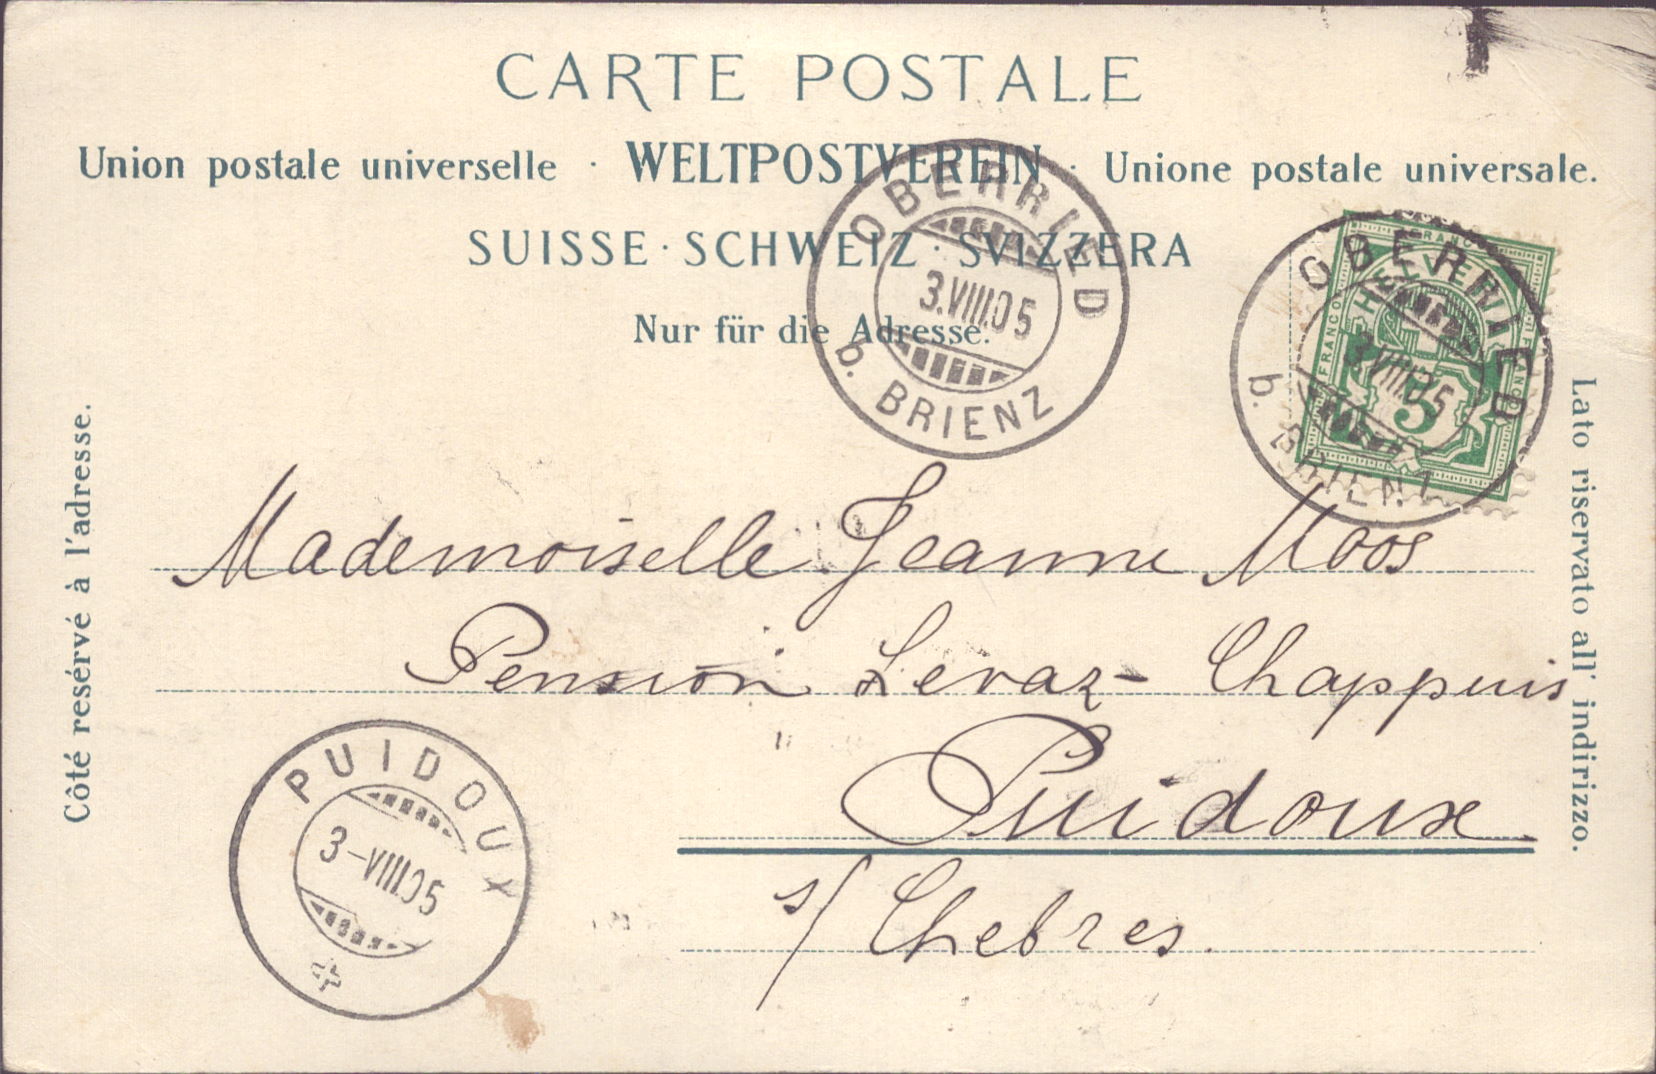 CARTE POSTALE
Union postale universelle · WELTPOSTVEREIN · Unione postale universale.
SUISSE · SCHWEIZ · SVIZZERA
Nur für die Adresse.
OBERRIED
3.VIII.05
b. BRIENZ
FRANCO
HELVETIA
FRANCO
FRANCO
5
OBERRIED
3.VIII.05
b. BRIENZ
Côté resérvé à l'adresse.
Lato riservato all' indirizzo.
Mademoiselle Jeanne Moos
Pension Levaz-Chappuis
Puidoux
s/ Chebres.
PUIDOUX
3-VIII.05